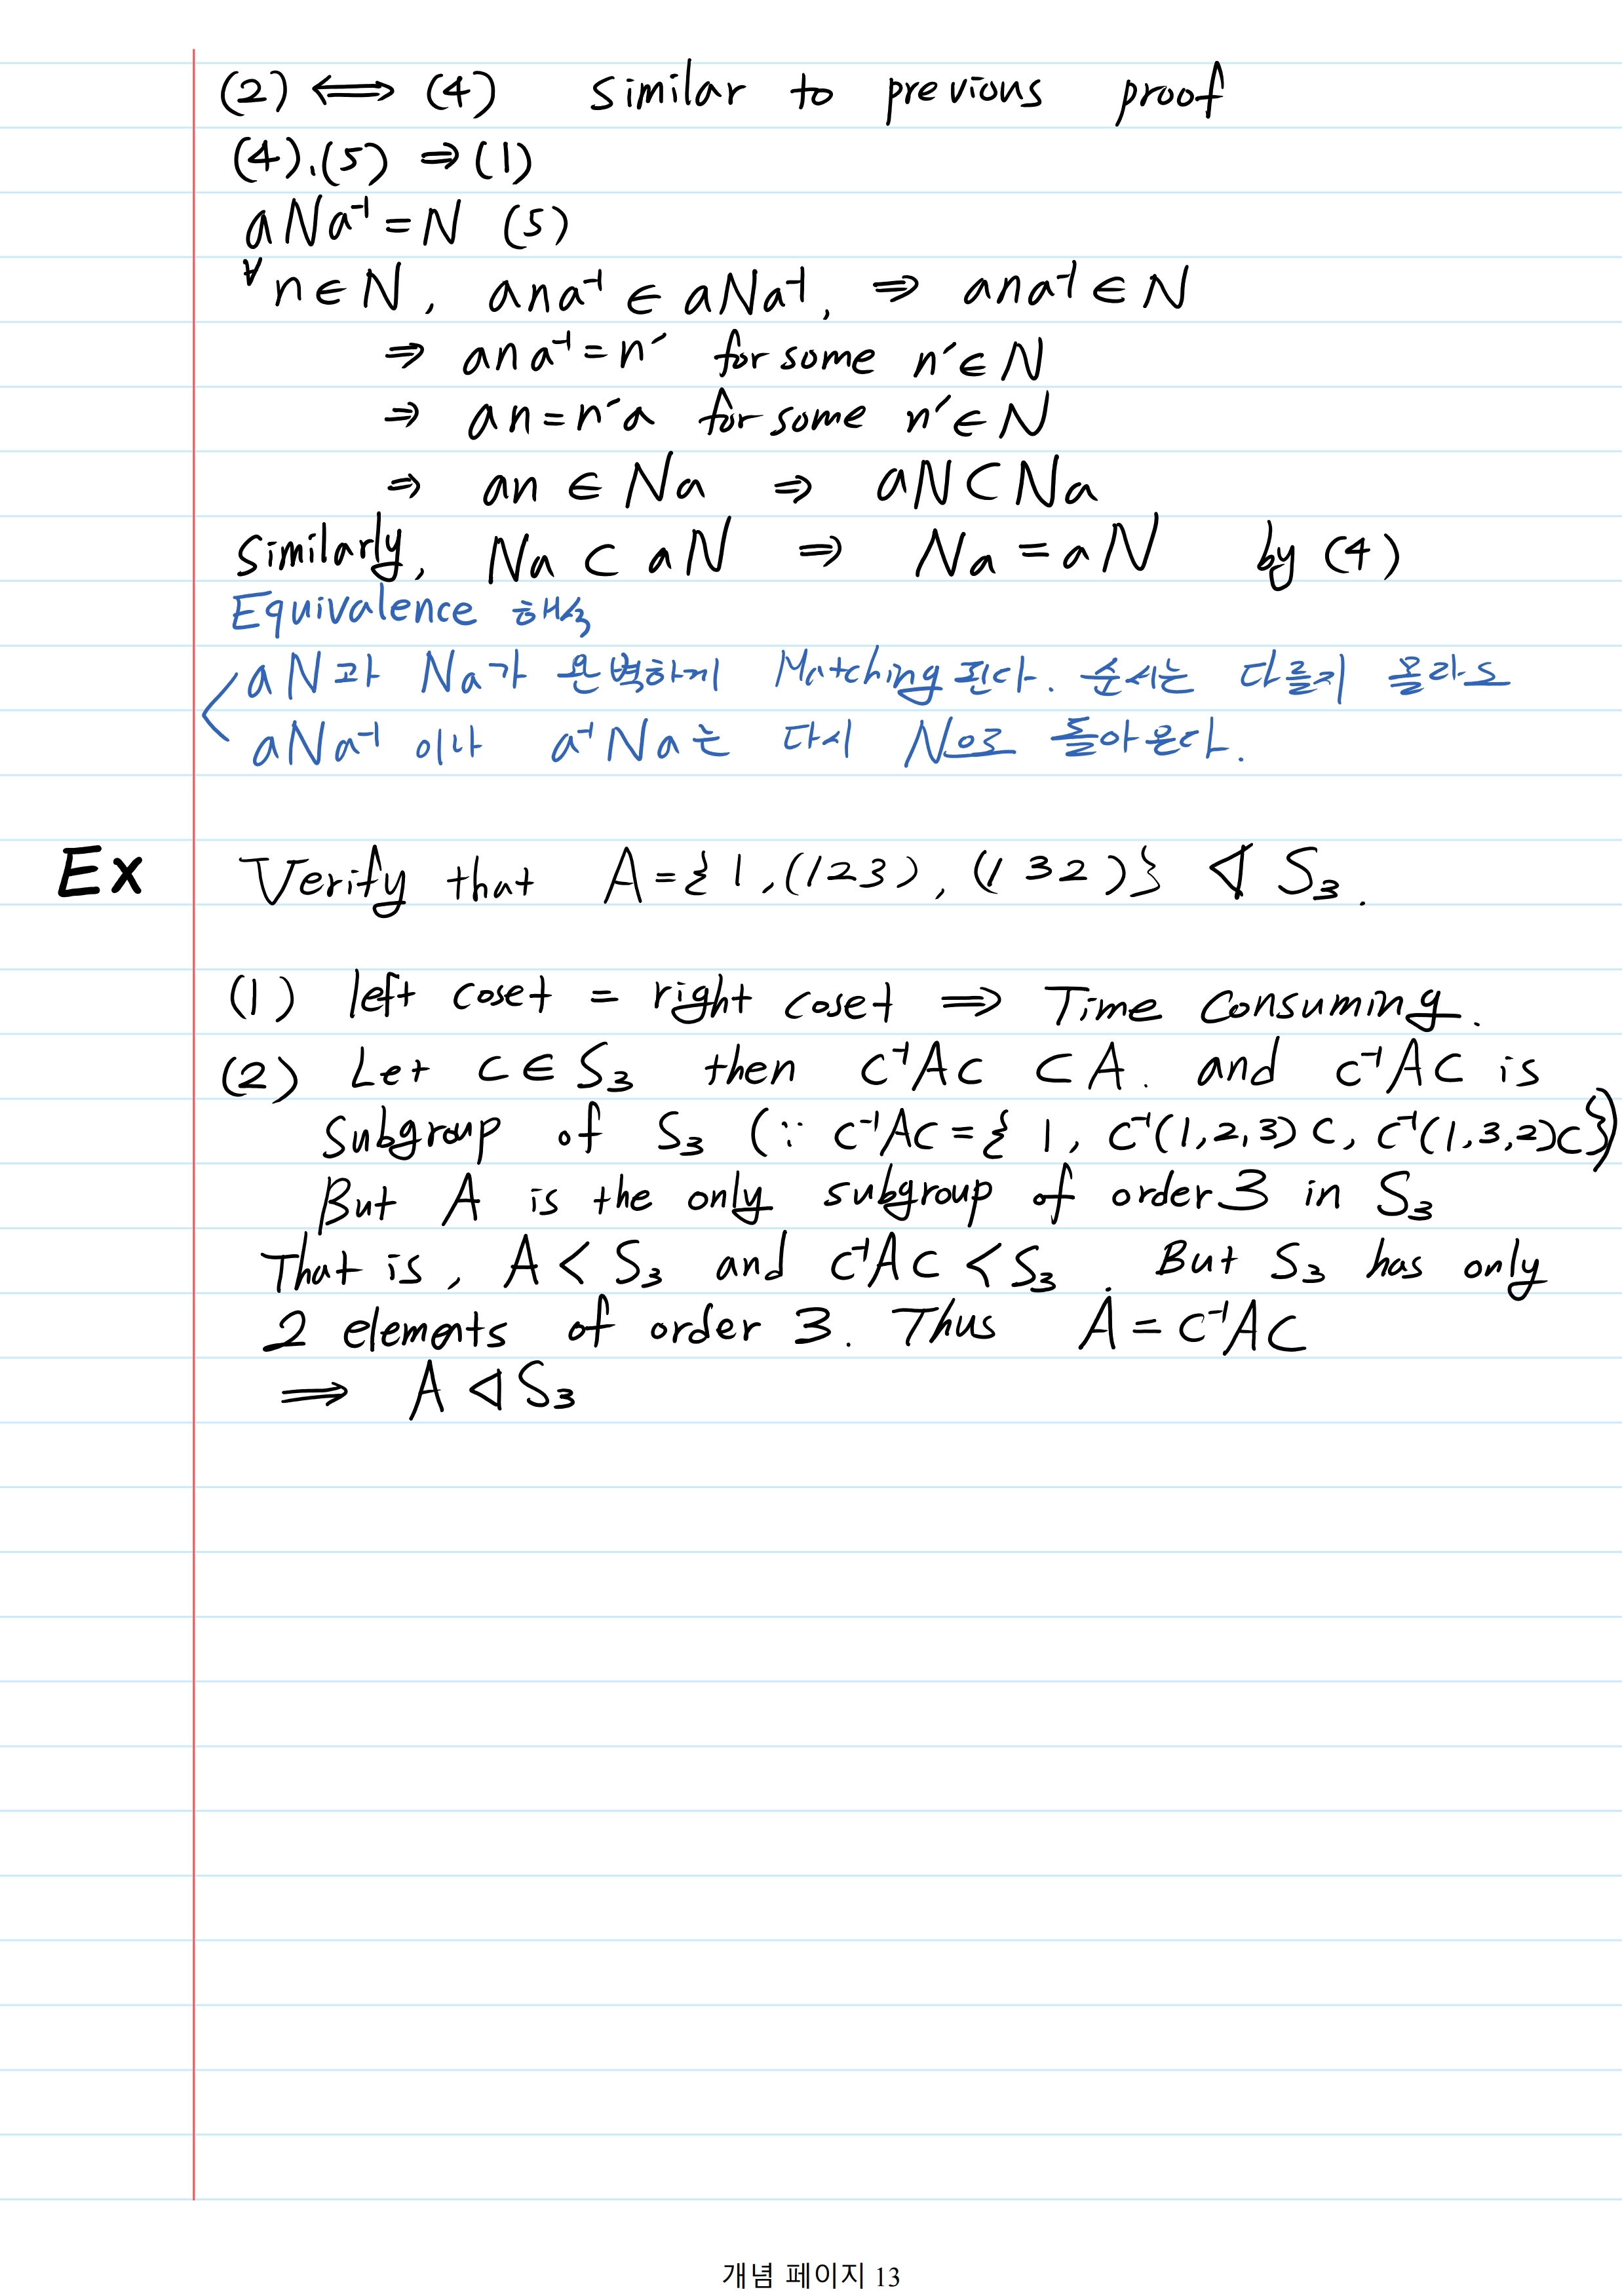 (2) ⟺ (4) similar to previous proof
(4).(5) ⇒ (1)
aNa⁻¹ = N (5)
∀n ∈ N, ana⁻¹ ∈ aNa⁻¹, ⇒ ana⁻¹ ∈ N
⇒ ana⁻¹ = n′ for some n′ ∈ N
⇒ an = n′a for some n′ ∈ N
⇒ an ∈ Na ⇒ aN ⊂ Na
Similarly, Na ⊂ aN ⇒ Na = aN by (4)
Equivalence 해석
aN과 Na가 완벽하게 Matching 된다. 순서는 다를지 몰라도
aNa⁻¹ 이나 a⁻¹Na는 다시 N으로 돌아온다.
Ex Verify that A = { 1, (1 2 3), (1 3 2) } ◁ S₃.
(1) left coset = right coset ⟹ Time Consuming.
(2) Let c ∈ S₃ then c⁻¹Ac ⊂ A. and c⁻¹Ac is
subgroup of S₃ (∵ c⁻¹Ac = { 1, c⁻¹(1,2,3)c, c⁻¹(1,3,2)c })
But A is the only subgroup of order 3 in S₃
That is, A < S₃ and c⁻¹Ac < S₃. But S₃ has only
2 elements of order 3. Thus A = c⁻¹Ac
⟹ A ◁ S₃
개념 페이지 13